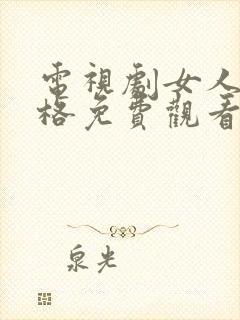 電視劇女人
格免費觀看
泉光